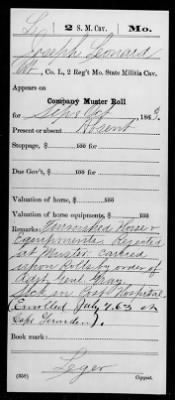 L 2 S. M. Cav. Mo.
Joseph Leonard
Pvt, Co. L, 2 Reg't Mo. State Militia Cav.
Appears on
Company Muster Roll
for Sept & Oct, 1863.
Present or absent Absent
Stoppage, $ 100 for
Due Gov't, $ 100 for
Valuation of horse, $ 100
Valuation of horse equipments, $ 100
Remarks: Furnished Horse &
equipments. Rejected
at Muster. carried
upon Rolls by order of
Adjt Genl Gray.
Left in Post Hospital
(Enrolled July 4.63 at
Cape Girardeau).
Book mark:
Leger
(359) Copyist.